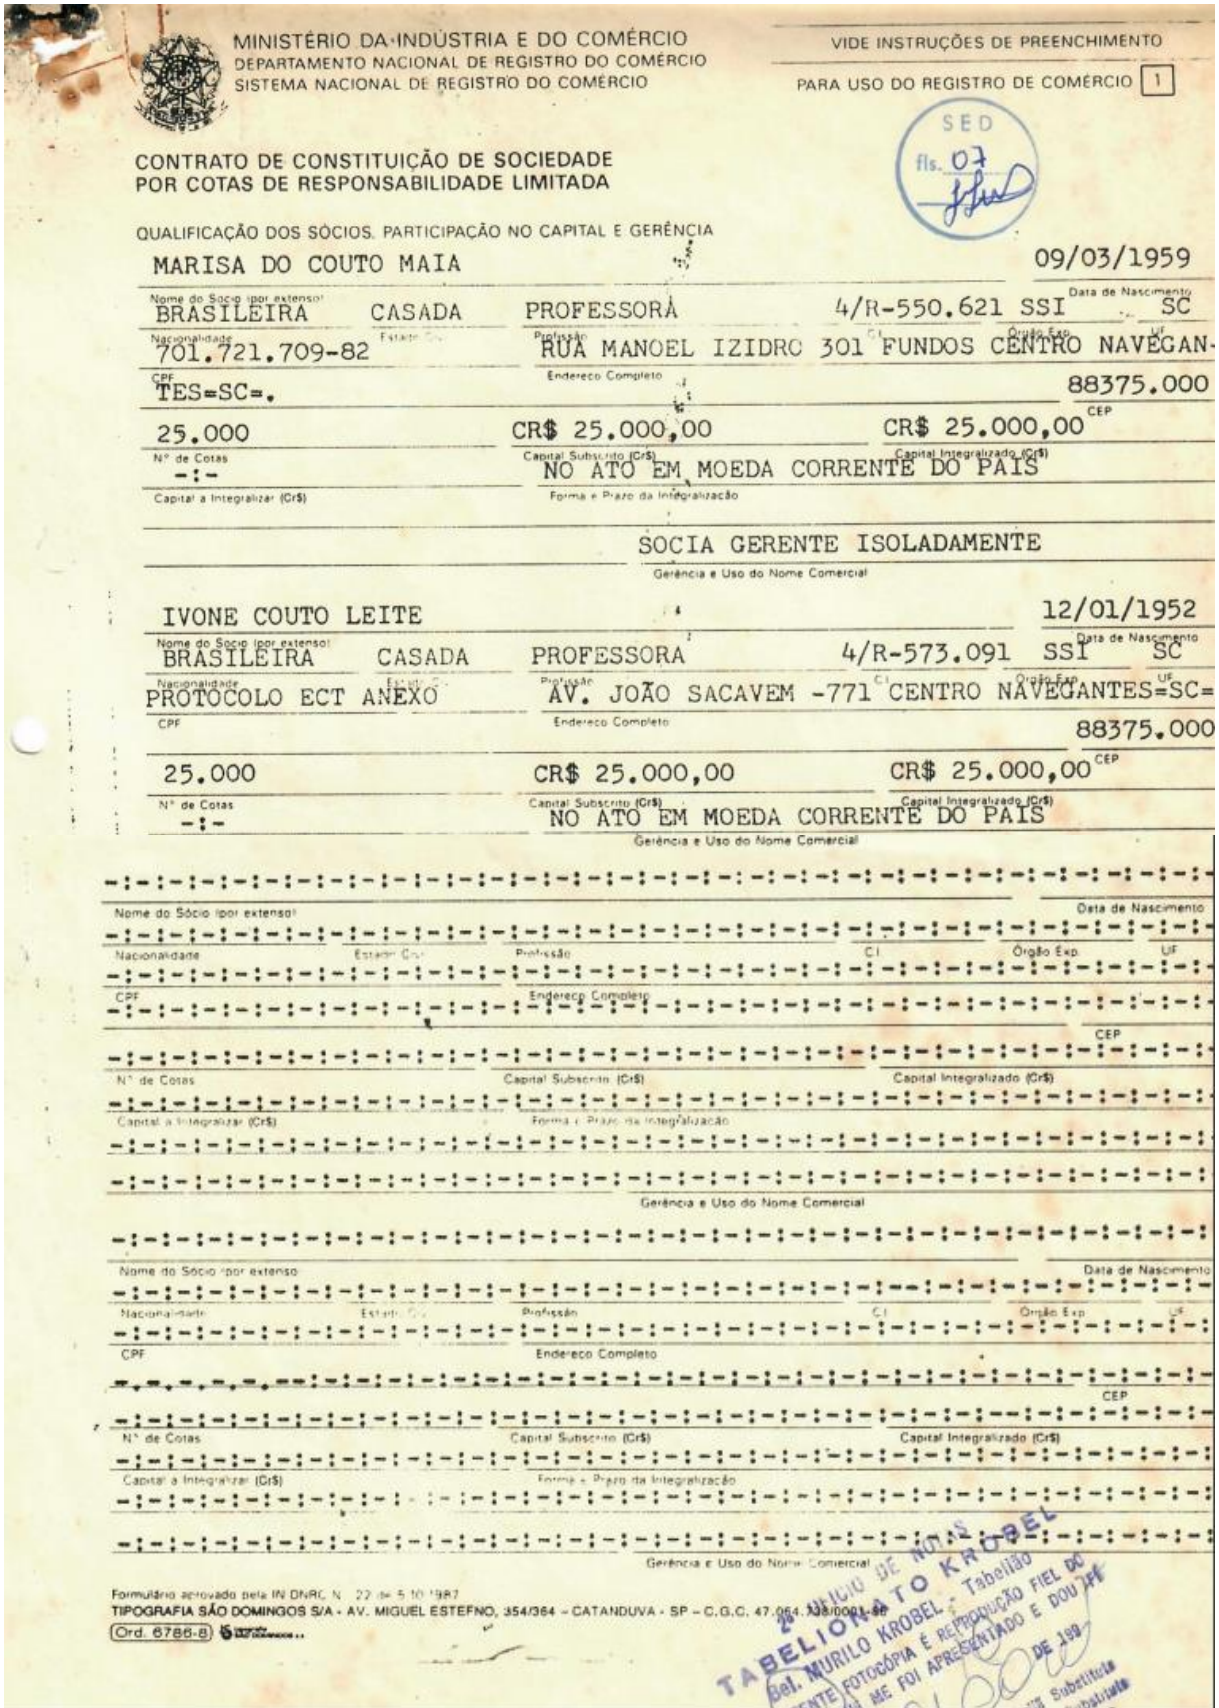 MINISTÉRIO DA INDÚSTRIA E DO COMÉRCIO
DEPARTAMENTO NACIONAL DE REGISTRO DO COMÉRCIO
SISTEMA NACIONAL DE REGISTRO DO COMÉRCIO
VIDE INSTRUÇÕES DE PREENCHIMENTO
PARA USO DO REGISTRO DE COMÉRCIO 1
SED
fls. 07
CONTRATO DE CONSTITUIÇÃO DE SOCIEDADE
POR COTAS DE RESPONSABILIDADE LIMITADA
QUALIFICAÇÃO DOS SÓCIOS, PARTICIPAÇÃO NO CAPITAL E GERÊNCIA
MARISA DO COUTO MAIA 09/03/1959
Nome do Sócio (por extenso) Data de Nascimento
BRASILEIRA CASADA PROFESSORA 4/R-550.621 SSI SC
Nacionalidade Profissão C I Órgão Exp. UF
701.721.709-82 RUA MANOEL IZIDRO 301 FUNDOS CENTRO NAVEGAN-
CPF Endereço Completo
TES=SC=. 88375.000
CEP
25.000 CR$ 25.000,00 CR$ 25.000,00
N° de Cotas Capital Subscrito (Cr$) Capital Integralizado (Cr$)
-:- NO ATO EM MOEDA CORRENTE DO PAIS
Capital a Integralizar (Cr$) Forma e Prazo da Integralização
SOCIA GERENTE ISOLADAMENTE
Gerência e Uso do Nome Comercial
IVONE COUTO LEITE 12/01/1952
Nome do Sócio (por extenso) Data de Nascimento
BRASILEIRA CASADA PROFESSORA 4/R-573.091 SSI SC
Nacionalidade Profissão C I UF
PROTOCOLO ECT ANEXO AV. JOÃO SACAVEM -771 CENTRO NAVEGANTES=SC=
CPF Endereço Completo
88375.000
CEP
25.000 CR$ 25.000,00 CR$ 25.000,00
N° de Cotas Capital Subscrito (Cr$) Capital Integralizado (Cr$)
-:- NO ATO EM MOEDA CORRENTE DO PAIS
Gerência e Uso do Nome Comercial
Nome do Sócio (por extenso) Data de Nascimento
Nacionalidade Profissão C I Órgão Exp. UF
CPF Endereço Completo
CEP
N° de Cotas Capital Subscrito (Cr$) Capital Integralizado (Cr$)
Capital a Integralizar (Cr$) Forma e Prazo da Integralização
Gerência e Uso do Nome Comercial
Nome do Sócio (por extenso Data de Nascimento
Nacionalidade Profissão C I Órgão Exp UF
CPF Endereço Completo
CEP
N° de Cotas Capital Subscrito (Cr$) Capital Integralizado (Cr$)
Capital a Integralizar (Cr$) Forma e Prazo da Integralização
Gerência e Uso do Nome Comercial
Formulário aprovado pela IN DNRC N 22 de 5 10 1987
TIPOGRAFIA SÃO DOMINGOS S/A - AV. MIGUEL ESTEFNO, 354/364 - CATANDUVA - SP - C.G.C. 47.064.
Ord. 6786-8
2° OFICIO DE NOTAS
TABELIONATO KROBEL
Bel. MURILO KROBEL - Tabelião
FOTOCÓPIA É REPRODUÇÃO FIEL DO
ME FOI APRESENTADO E DOU FÉ
DE 199
Substituta
Substituta